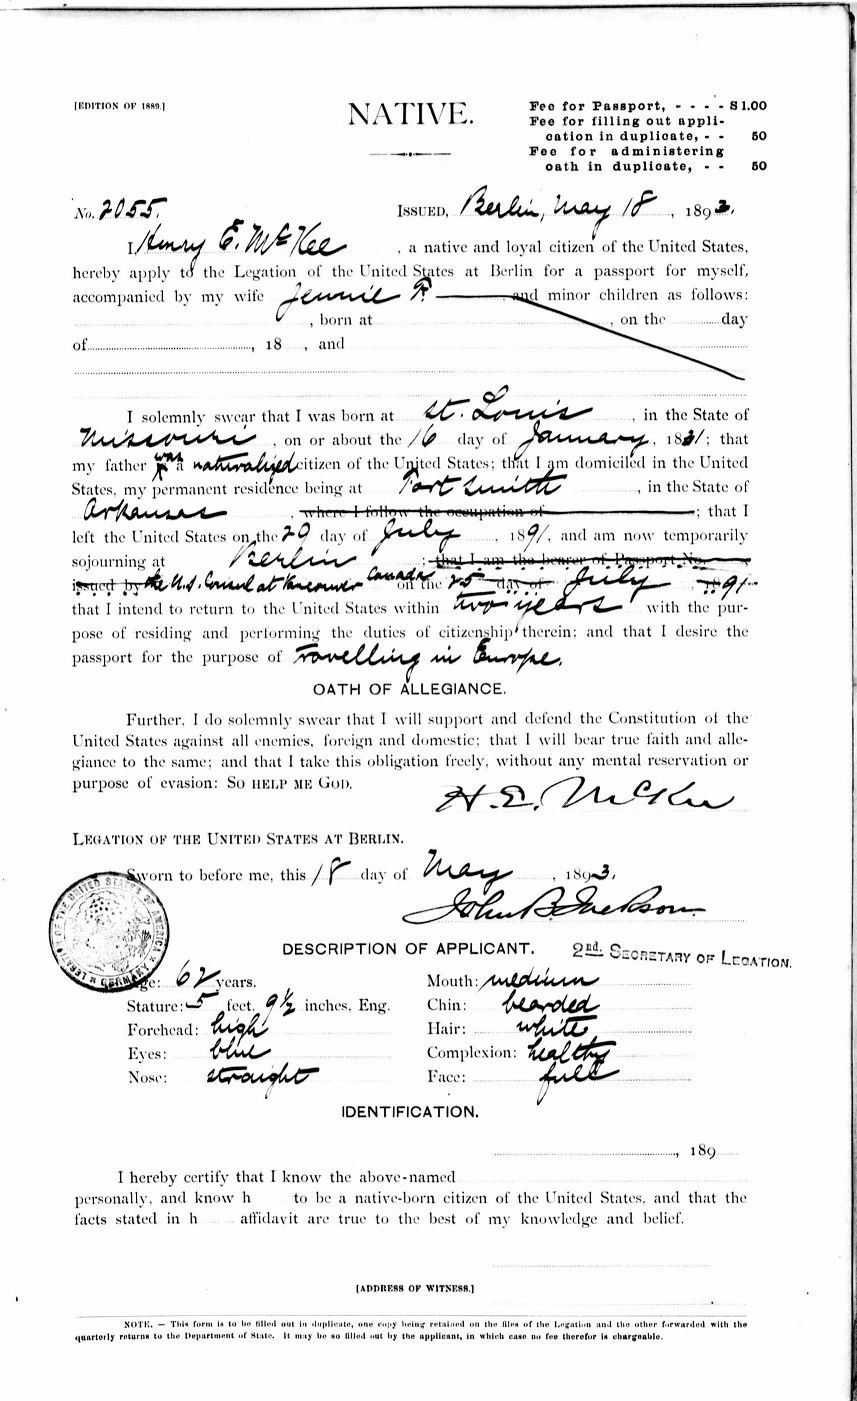 [EDITION OF 1889.]
NATIVE.
Fee for Passport, - - - - $1.00
Fee for filling out appli-
cation in duplicate, - - 50
Fee for administering
oath in duplicate, - - 50
No. 2055.
ISSUED, Berlin, May 18, 1893.
I Henry E. McKee, a native and loyal citizen of the United States,
hereby apply to the Legation of the United States at Berlin for a passport for myself,
accompanied by my wife Jennie F. and minor children as follows:
, born at , on the day
of , 18 , and
I solemnly swear that I was born at St. Louis, in the State of
Missouri, on or about the 16 day of January, 1831; that
my father was a naturalized citizen of the United States; that I am domiciled in the United
States, my permanent residence being at Fort Smith, in the State of
Arkansas, where I follow the occupation of ; that I
left the United States on the 29 day of July, 1891, and am now temporarily
sojourning at Berlin; that I am the bearer of Passport No.
issued by the U.S. Consul at Vancouver Canada on the 25 day of July, 1891
that I intend to return to the United States within two years with the pur-
pose of residing and performing the duties of citizenship therein; and that I desire the
passport for the purpose of travelling in Europe.
OATH OF ALLEGIANCE.
Further, I do solemnly swear that I will support and defend the Constitution of the
United States against all enemies, foreign and domestic; that I will bear true faith and alle-
giance to the same; and that I take this obligation freely, without any mental reservation or
purpose of evasion: SO HELP ME GOD.
H. E. McKee
LEGATION OF THE UNITED STATES AT BERLIN.
Sworn to before me, this 18 day of May, 1893.
John B. Jackson.
LEGATION OF THE UNITED STATES OF AMERICA GERMANY
DESCRIPTION OF APPLICANT.
2nd. SECRETARY OF LEGATION.
Age: 62 years.
Mouth: medium
Stature: 5 feet. 9½ inches, Eng.
Chin: bearded
Forehead: high
Hair: white
Eyes: blue
Complexion: healthy
Nose: straight
Face: full
IDENTIFICATION.
, 189
I hereby certify that I know the above-named
personally, and know h to be a native-born citizen of the United States, and that the
facts stated in h affidavit are true to the best of my knowledge and belief.
[ADDRESS OF WITNESS.]
NOTE. — This form is to be filled out in duplicate, one copy being retained on the files of the Legation and the other forwarded with the
quarterly returns to the Department of State. It may be so filled out by the applicant, in which case no fee therefor is chargeable.